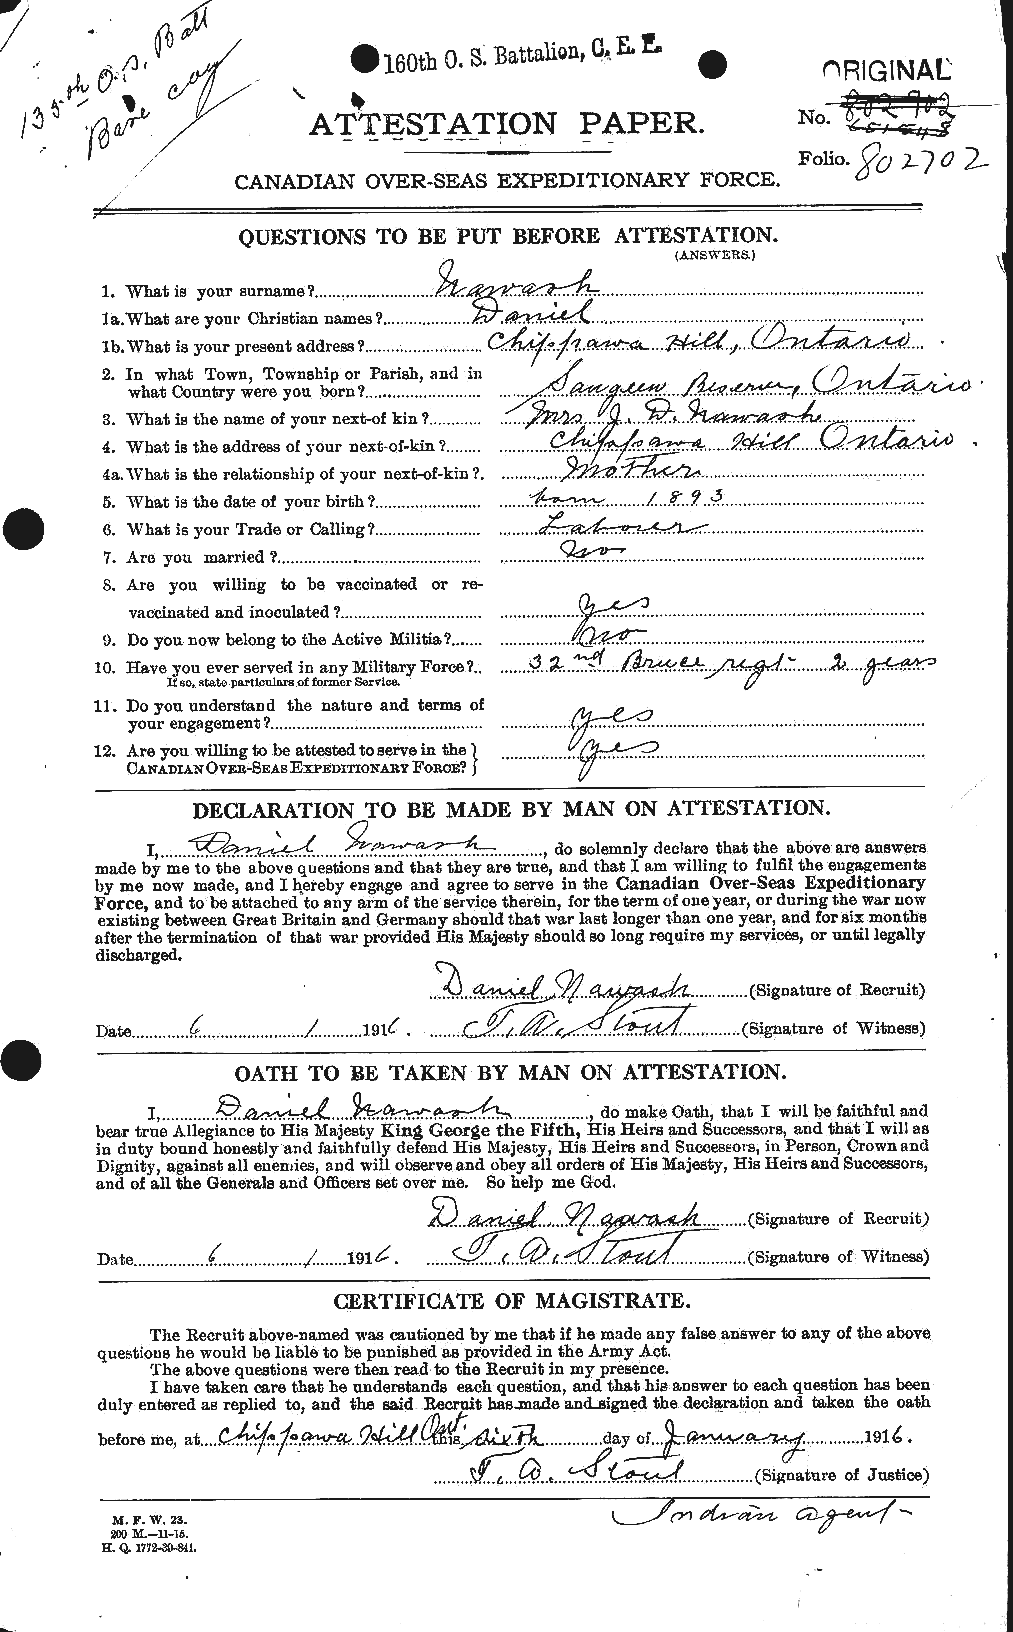 135th O.S. Batt
160th O. S. Battalion, C. E. F.
ORIGINAL
ATTESTATION PAPER.
No. 802702
Folio. 802702
CANADIAN OVER-SEAS EXPEDITIONARY FORCE.
QUESTIONS TO BE PUT BEFORE ATTESTATION.
(ANSWERS.)
1. What is your surname? Nawash
1a. What are your Christian names? Daniel
1b. What is your present address? Chippawa Hill, Ontario
2. In what Town, Township or Parish, and in
what Country were you born? Saugeen Reserve, Ontario
3. What is the name of your next-of kin? Mrs J. D. Nawash
4. What is the address of your next-of-kin? Chippawa Hill Ontario.
4a. What is the relationship of your next-of-kin? Mother
5. What is the date of your birth? born 1893
6. What is your Trade or Calling? Laborer
7. Are you married? No
8. Are you willing to be vaccinated or re-
vaccinated and inoculated? yes
9. Do you now belong to the Active Militia? No
10. Have you ever served in any Military Force? 32nd Bruce regt - 2 years
If so, state particulars of former Service.
11. Do you understand the nature and terms of
your engagement? yes
12. Are you willing to be attested to serve in the
CANADIAN OVER-SEAS EXPEDITIONARY FORCE? yes
DECLARATION TO BE MADE BY MAN ON ATTESTATION.
I, Daniel Nawash, do solemnly declare that the above are answers
made by me to the above questions and that they are true, and that I am willing to fulfil the engagements
by me now made, and I hereby engage and agree to serve in the Canadian Over-Seas Expeditionary
Force, and to be attached to any arm of the service therein, for the term of one year, or during the war now
existing between Great Britain and Germany should that war last longer than one year, and for six months
after the termination of that war provided His Majesty should so long require my services, or until legally
discharged.
Daniel Nawash (Signature of Recruit)
Date 6 / 1 1916. T. A. Stout (Signature of Witness)
OATH TO BE TAKEN BY MAN ON ATTESTATION.
I, Daniel Nawash, do make Oath, that I will be faithful and
bear true Allegiance to His Majesty King George the Fifth, His Heirs and Successors, and that I will as
in duty bound honestly and faithfully defend His Majesty, His Heirs and Successors, in Person, Crown and
Dignity, against all enemies, and will observe and obey all orders of His Majesty, His Heirs and Successors,
and of all the Generals and Officers set over me. So help me God.
Daniel Nawash (Signature of Recruit)
Date 6 / 1 1916. T. A. Stout (Signature of Witness)
CERTIFICATE OF MAGISTRATE.
The Recruit above-named was cautioned by me that if he made any false answer to any of the above
questions he would be liable to be punished as provided in the Army Act.
The above questions were then read to the Recruit in my presence.
I have taken care that he understands each question, and that his answer to each question has been
duly entered as replied to, and the said Recruit has made and signed the declaration and taken the oath
before me, at Chippawa Hill Ont. this sixth day of January 1916.
T. A. Stout (Signature of Justice)
Indian agent-
M. F. W. 23.
200 M.—11-15.
H. Q. 1772-39-841.